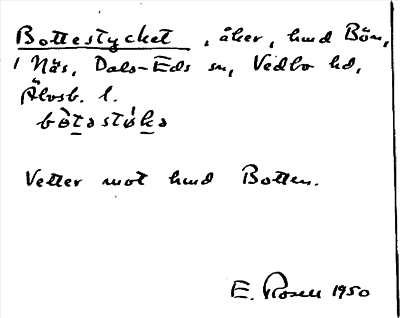 Bottestycket, åker, hmd Bön,
i Näs, Dals-Eds sn, Vedbo hd,
Älvsb. l.
Vetter mot hmd Botten.
E. Rosell 1950